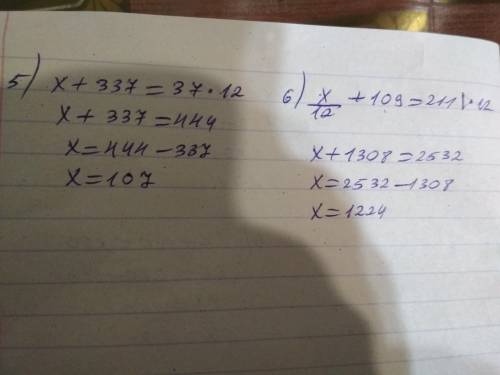 5) x + 337 = 37 · 12
x + 337 = 444
x = 444 - 337
x = 107
6) x/12 + 109 = 211 |· 12
x + 1308 = 2532
x = 2532 - 1308
x = 1224